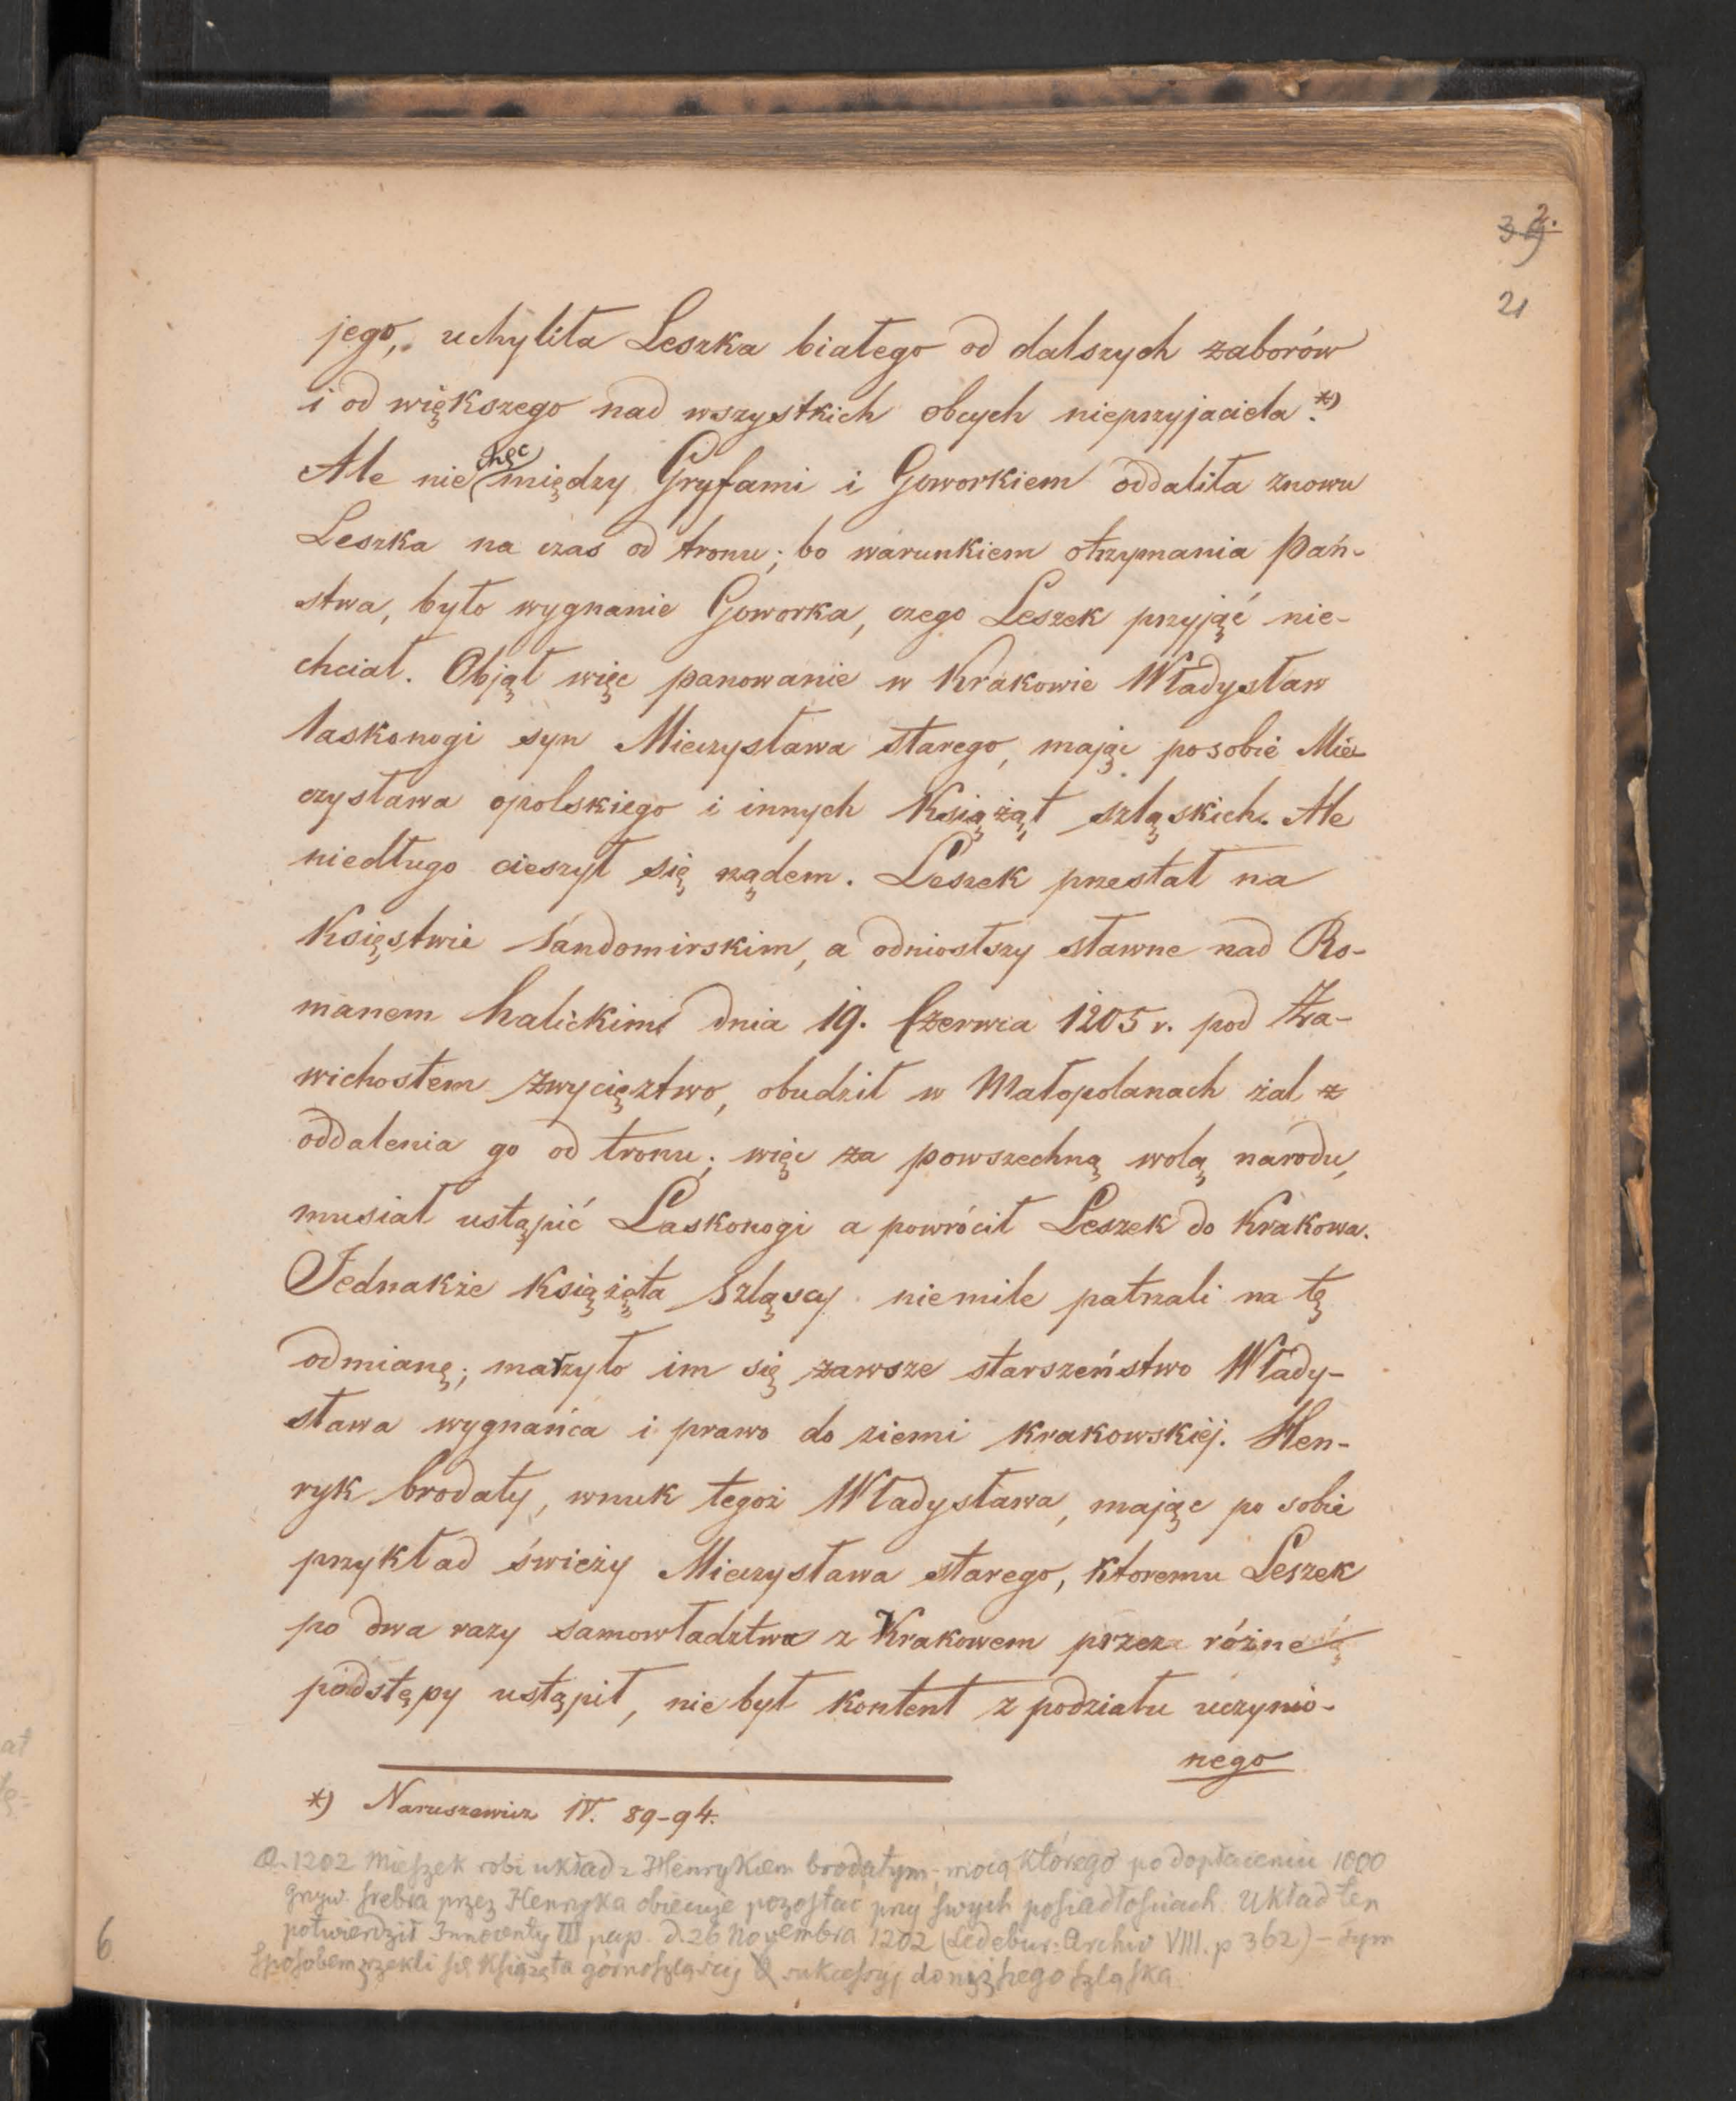 2.
39
21
jego, uchyliła Leszka białego od dalszych zaborów
i od większego nad wszystkich obcych nieprzyjaciela.*)
Ale niechęć między Gryfami i Goworkiem oddaliła znowu
Leszka na czas od tronu; bo warunkiem otrzymania Pań-
stwa, było wygnanie Goworka, czego Leszek przyjąć nie-
chciał. Objął więc panowanie w Krakowie Władysław
laskonogi syn Mieczysława starego, mając po sobie Mie-
czysława opolskiego i innych Książąt szląskich. Ale
niedługo cieszył się rządem. Leszek przestał na
Księstwie Sandomirskim, a odniosłszy sławne nad Ro-
manem halickim dnia 19. Czerwca 1205 r. pod Za-
wichostem zwycięztwo, obudził w Małopolanach żal z
oddalenia go od tronu; więc za powszechną wolą narodu,
musiał ustąpić Laskonogi a powrócił Leszek do Krakowa.
Jednakże Książęta Szląscy niemile patrzali na tę
odmianę; marzyło im się zawsze starszeństwo Włady-
sława wygnańca i prawo do ziemi Krakowskiéj. Hen-
ryk brodaty, wnuk tegoż Władysława, mając po sobie
przykład świeży Mieczysława starego, ktoremu Leszek
po dwa razy samowładztwa z Krakowem przez różne
podstępy ustąpił, nie był kontent z podziału uczynio-
nego
*) Naruszewicz IV. 89-94.
R. 1202 Mieszek robi układ z Henrykiem brodatym, mocą którego po dopłaceniu 1000
grzyw. srebra przez Henryka obiecuje pozostać przy swych posiadłościach. Układ ten
potwierdził Innocenty III pap. d. 26 Novembra 1202 (Ledebur: Archiv VIII. p 362) – tym
sposobem zrzekli się Książęta górnoszląscy sukcessyj do niższego szląska.
6